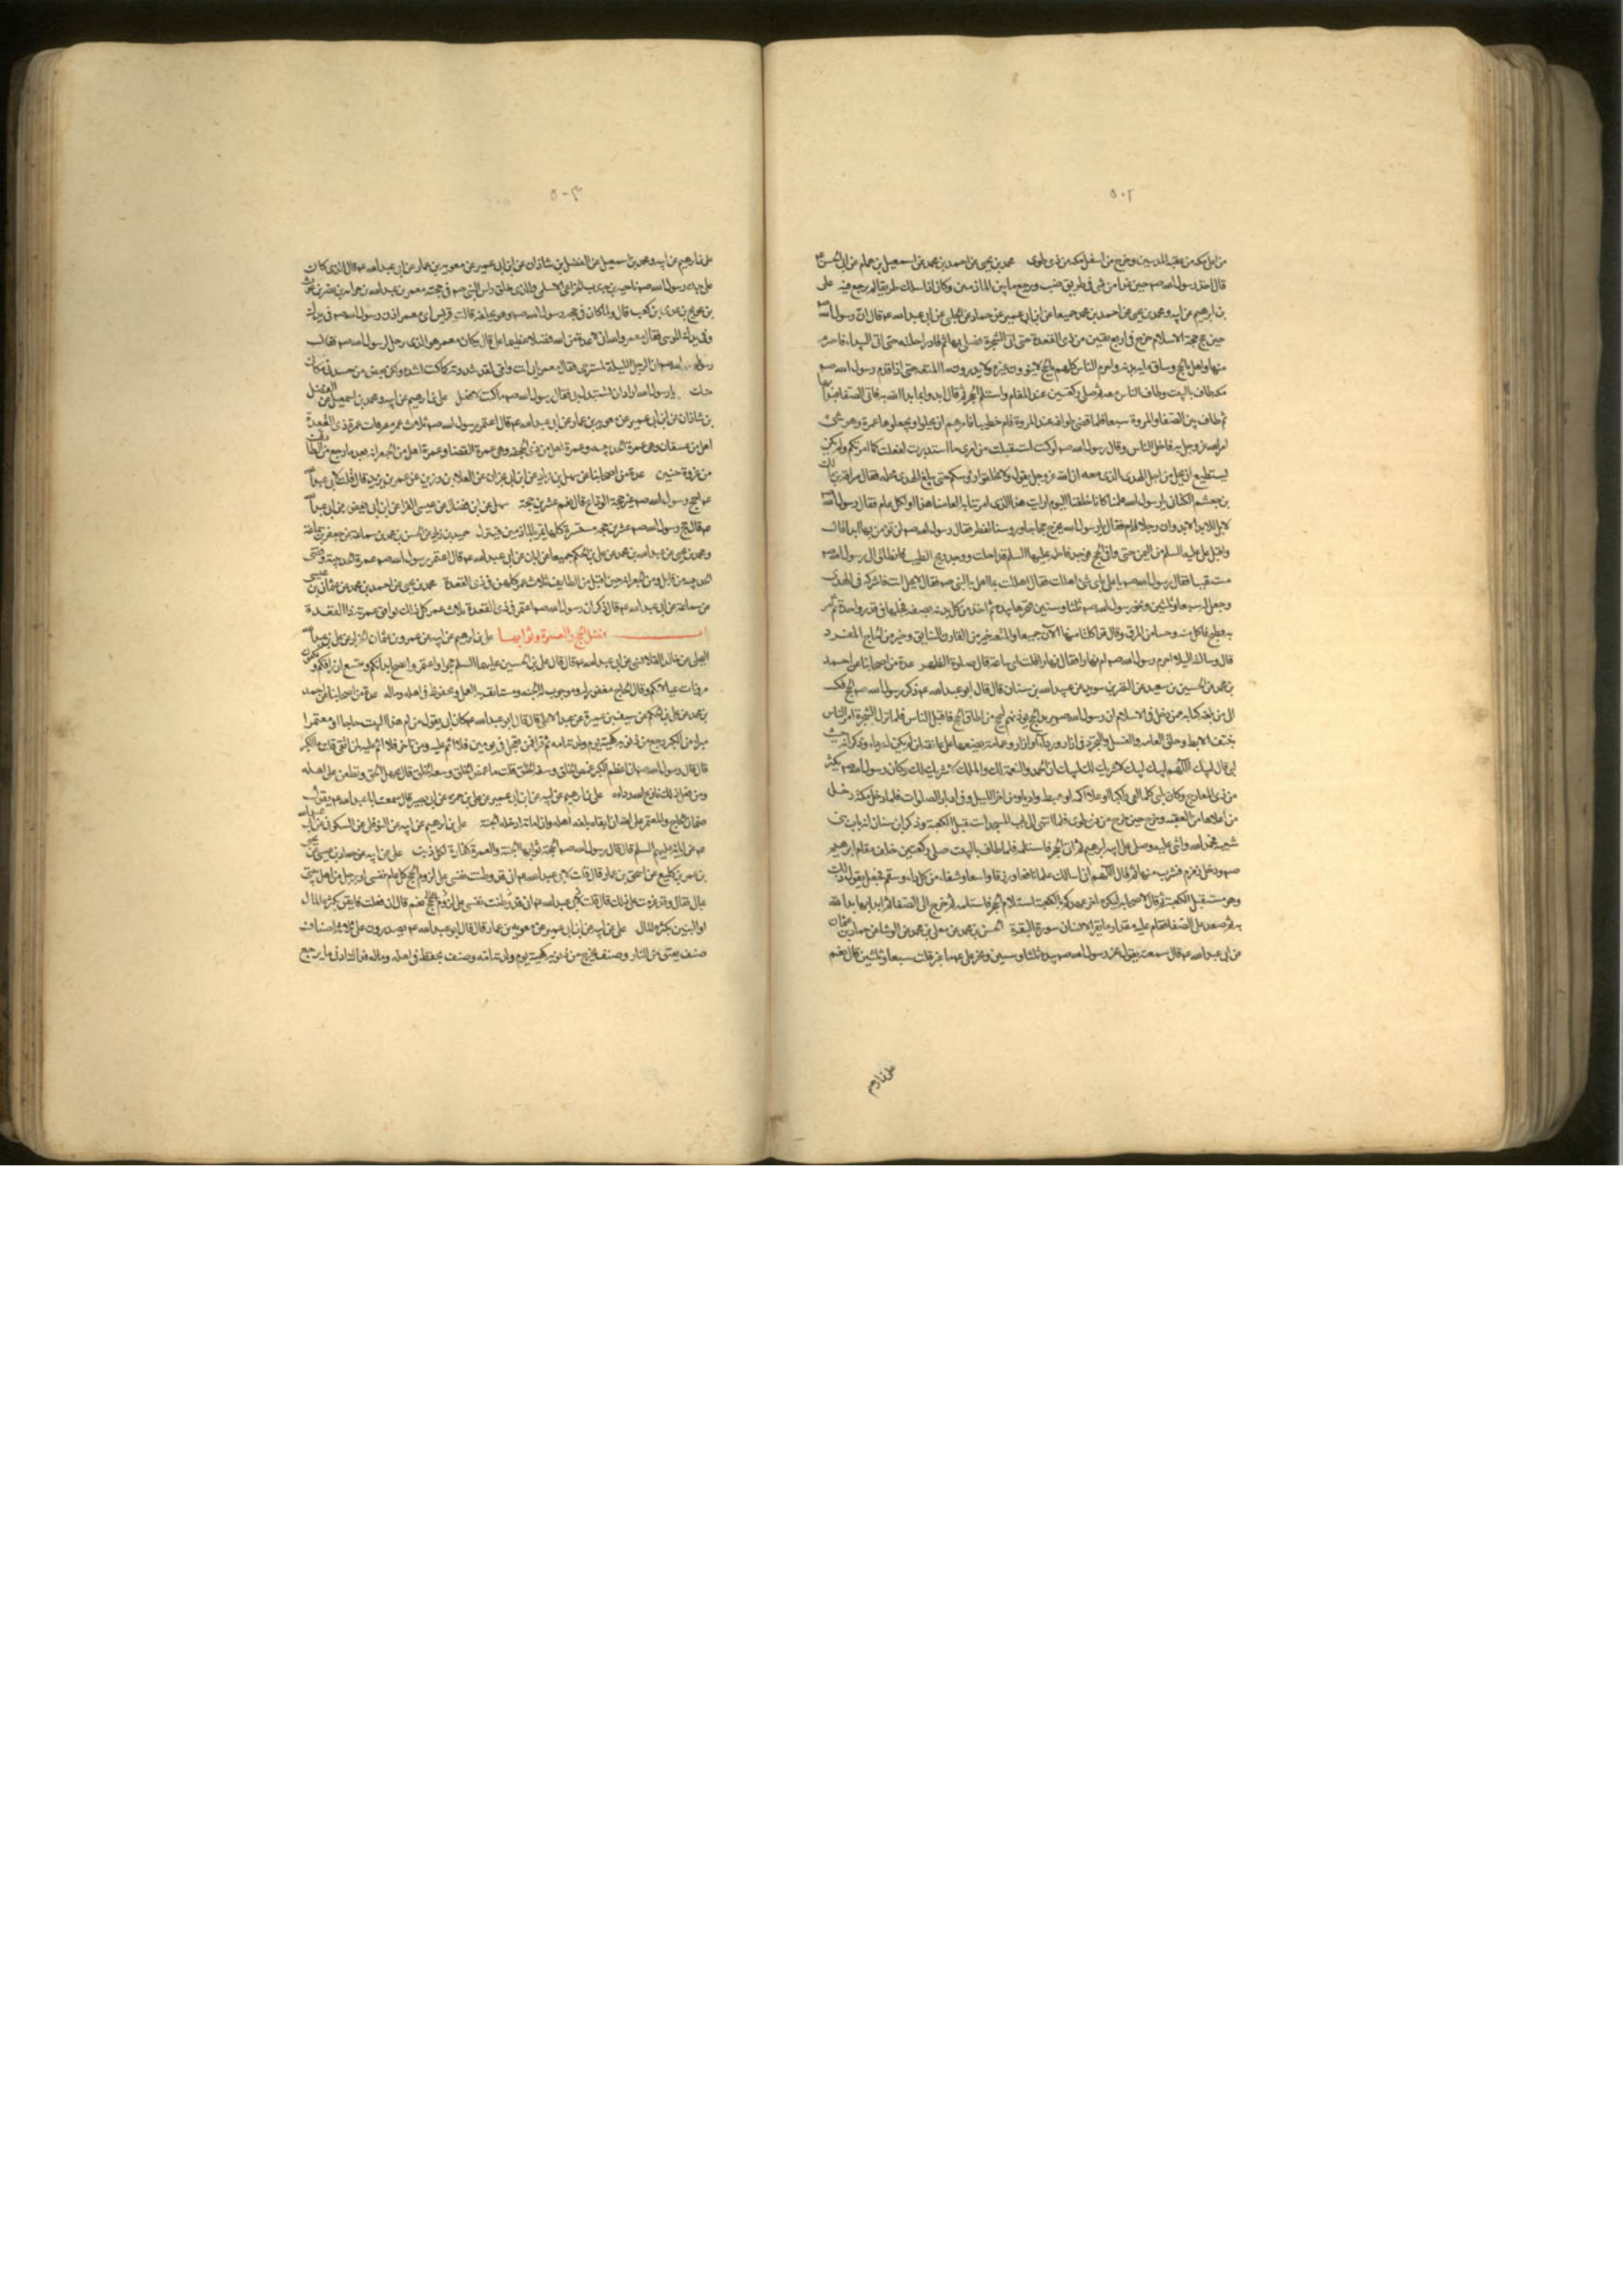 ٥٠٢
من اعلى مكه من عقبة المدنيين وخرج من اسفل مكه من ذى طوى محمد بن يحيى عن احمد بن محمد عن اسمعيل بن همام عن ابى الحسن ع
قال اخذ رسول الله صم حين غدا من منى فى طريق ضب ورجع ما بين المازمين وكان اذا سلك طريقا لم يرجع فيه على
بن ابرهيم عن ابيه ومحمد بن يحيى عن احمد بن محمد جميعا عن ابن ابى عمير عن حماد عن الحلبى عن ابى عبد الله ع قال ان رسول الله
حين حج حجة الاسلام خرج فى اربع بقين من ذى القعدة حتى اتى الشجرة فصلى بها ثم قاد راحلته حتى اتى البيداء فاحرم
منها واهل بالحج وساق مايه بدنه واحرم الناس كلهم بالحج لا ينوون عمرة ولا يدرون ما المتعه حتى اذا قدم رسول الله صم
مكه طاف بالبيت وطاف الناس معه ثم صلى ركعتين عند المقام واستلم الحجر ثم قال ابدوا بما بدا الله به فاتى الصفا فبدا بها
ثم طاف بين الصفا والمروة سبعا فلما قضى طوافه عند المروة قام خطيبا فامرهم ان يحلوا ويجعلوها عمرة وهو شىء
امر الله عز وجل به فاحل الناس وقال رسول الله صم لو كنت استقبلت من امرى ما استدبرت لفعلت كما امرتكم ولم يكن
يستطيع ان يحل من اجل الهدى الذى معه ان الله عز وجل يقول ولا تحلقوا رؤسكم حتى يبلغ الهدى محله فقال سراقة بن مالك
بن جعشم الكنانى يا رسول الله علمنا كانا خلقنا اليوم ارايت هذا الذى امرتنا به لعامنا هذا او لكل عام فقال رسول الله
لا بل للابد الابد وان رجلا قام فقال يا رسول الله نخرج حجاجا ورؤسنا تقطر فقال رسول الله صم انك لن تؤمن بها ابدا قال
واقبل على عليه السلم من اليمن حتى وافى الحج فوجد فاطمه عليها السلم قد احلت ووجد ريح الطيب فانطلق الى رسول الله صم
مستفتيا فقال رسول الله صم يا على باى شىء اهللت فقال اهللت بما اهل به النبى صم فقال لا تحل انت فاشركه فى الهدى
وجعل له سبعا وثلثين ونحر رسول الله صم ثلثا وستين نحرها بيده ثم اخذ من كل بدنه بضعه فجعلها فى قدر واحدة ثم امر
به فطبخ فاكل منه وحسا من المرق وقال قد اكلنا منها الآن جميعا والمتعه خير من القارن السايق وخير من الحاج المفرد
قال وسالته اليلا احرم رسول الله صم ام نهارا فقال نهارا قلت اى ساعة قال صلوة الظهر عدة من اصحابنا عن احمد
بن محمد عن الحسين بن سعيد عن النضر بن سويد عن عبد الله بن سنان قال قال ابو عبد الله ع ذكر رسول الله صم الحج فكتب
الى من بلغه كتابه ممن دخل فى الاسلام ان رسول الله صم يريد الحج يؤذنهم بذلك ليحج من اطاق الحج فاقبل الناس فلما نزل الشجرة امر الناس
بنتف الابط وحلق العانه والغسل والتجرد فى ازار ورداء او ازار وعمامة يضعها على عاتقه لمن لم يكن له رداء وذكر انه حيث
لبى قال لبيك اللهم لبيك لبيك لا شريك لك لبيك ان الحمد والنعمة لك والملك لا شريك لك وكان رسول الله صم يكثر
من ذى المعارج وكان يلبى كلما لقى راكبا او علا اكمه او هبط واديا ومن اخر الليل وفى ادبار الصلوات فلما دخل مكة دخل
من اعلاها من العقبه وخرج حين خرج من ذى طوى فلما انتهى الى باب المسجد استقبل الكعبة وذكر ابن سنان انه باب بنى
شيبه فحمد الله واثنى عليه وصلى على ابيه ابرهيم ثم اتى الحجر فاستلمه فلما طاف بالبيت صلى ركعتين خلف مقام ابرهيم
صم ودخل زمزم فشرب منها ثم قال اللهم انى اسالك علما نافعا ورزقا واسعا وشفاء من كل داء وسقم فجعل يقول ذلك
وهو مستقبل الكعبة ثم قال لاصحابه ليكن اخر عهدكم بالكعبة استلام الحجر فاستلمه ثم خرج الى الصفا ثم قال ابدا بما بدا الله
به ثم صعد على الصفا فقام عليه مقدار ما يقرا الانسان سورة البقرة الحسين بن محمد عن معلى بن محمد عن الوشا عن حماد بن عثمان
عن ابى عبد الله ع قال سمعته يقول نحر رسول الله صم بيده ثلثا وستين ونحر على ع ما غبر قلت سبعا وثلثين قال نعم
على بن ابرهيم
٥٠٣
على بن ابرهيم عن ابيه ومحمد بن اسمعيل عن الفضل بن شاذان عن ابن ابى عمير عن معويه بن عمار عن ابى عبد الله ع قال الذى كان
على بدن رسول الله صم ناجيه بن جندب الخزاعى الاسلمى والذى حلق راس النبى صم فى حجته معمر بن عبد الله بن حراثه بن نضر بن عوف
بن عويج بن عدى بن كعب قال ولما كان فى حجه رسول الله صم وهو يحلقه قالت قريش اى معمر اذن رسول الله صم فى يدك
وفى يدك الموسى فقال معمر والله انى لاعده من الله فضلا عظيما على قال وكان معمر هو الذى يرحل لرسول الله صم فقال
رسول الله صم يا معمر ان الرحل الليلة لمسترخى فقال معمر بابى انت وامى لقد شددته كما كنت اشده ولكن بعض من حسدنى مكانى
منك يا رسول الله اراد ان تستبدل بى فقال رسول الله صم ما كنت لافعل على بن ابرهيم عن ابيه ومحمد بن اسمعيل عن الفضل
بن شاذان عن ابن ابى عمير عن معويه بن عمار عن ابى عبد الله ع قال اعتمر رسول الله صم ثلاث عمر مفترقات عمرة ذى القعدة
اهل من عسفان وهى عمرة الحديبيه وعمرة اهل من الجحفه وهى عمرة القضا وعمرة اهل من الجعرانه بعد ما رجع من الطائف
من غزوة حنين عدة من اصحابنا عن سهل بن زياد عن ابن ابى نجران عن العلا بن رزين عن عمر بن يزيد قال قلت لابى عبد الله
ع احج رسول الله صم غير حجة الوداع قال نعم عشرين حجة سهل عن ابن فضال عن عيسى الفرا عن ابن ابى يعفور عن ابى عبد الله
ع قال حج رسول الله صم عشرين حجه مستسرة كلها يمر بالمازمين فينزل حميد بن زياد عن الحسن بن محمد بن سماعة عن جعفر بن سماعة
ومحمد بن يحيى عن عبد الله بن محمد عن على بن الحكم جميعا عن ابان عن ابى عبد الله ع قال اعتمر رسول الله صم عمرة الحديبيه وقضى
الحديبيه من قابل ومن الجعرانه حين اقبل من الطايف ثلاث عمر كلهن فى ذى القعدة محمد بن يحيى عن احمد بن محمد عن عثمان بن عيسى
عن سماعة عن ابى عبد الله ع قال ذكر ان رسول الله صم اعتمر فى ذى القعدة ثلاث عمر كل ذلك توافق عمرته ذا القعدة
باب فضل الحج والعمرة وثوابهما على بن ابرهيم عن ابيه عن عمرو بن عثمان الخزاز عن على بن عبد الله
البجلى عن خالد القلانسى عن ابى عبد الله ع قال قال على بن الحسين عليهما السلم حجوا واعتمروا تصح ابدانكم وتتسع ارزاقكم وتكفون
مؤنات عيالاتكم وقال الحاج مغفور له وموجوب له الجنه ومستانف به العمل ومحفوظ فى اهله وماله عدة من اصحابنا عن احمد
بن محمد عن على بن الحكم عن سيف بن عميرة عن عبد الاعلى قال قال ابو عبد الله ع كان ابى يقول من ام هذا البيت حاجا او معتمرا
مبراء من الكبر رجع من ذنوبه كهيئة يوم ولدته امه ثم قرا فمن تعجل فى يومين فلا اثم عليه ومن تاخر فلا اثم عليه لمن اتقى قلت ما الكبر
قال قال رسول الله صم ان اعظم الكبر غمص الخلق وسفه الحق قلت ما غمص الخلق وسفه الحق قال يجهل الحق ويطعن على اهله
ومن فعل ذلك نازع الله رداءه على بن ابرهيم عن ابيه عن ابن ابى عمير عن على بن حمزه عن ابى بصير قال سمعت ابا عبد الله ع يقول
ضمان الحاج والمعتمر على الله ان ابقاه بلغه اهله وان اماته ادخله الجنة على بن ابرهيم عن ابيه عن النوفلى عن السكونى عن ابى عبد الله
ع عن ابائه عليهم السلم قال قال رسول الله صم الحجة ثوابها الجنة والعمرة كفارة لكل ذنب على عن ابيه عن حماد بن عيسى عن يحيى
بن عمر بن كليع عن اسحق بن عمار قال قلت لابى عبد الله ع انى قد وطنت نفسى على لزوم الحج كل عام بنفسى او برجل من اهل بيتى
بمالى فقال وقد عزمت على ذلك قال قلت نعم قال ان فعلت فايقن بكثرة المال
او البنين بكثرة المال على عن ابيه عن ابن ابى عمير عن معويه بن عمار قال قال ابو عبد الله ع يصدرون على ثلاثة اصناف
صنف يعتق من النار وصنف يخرج من ذنوبه كهيئة يوم ولدته امه وصنف يحفظ فى اهله وماله فذاك ادنى ما يرجع